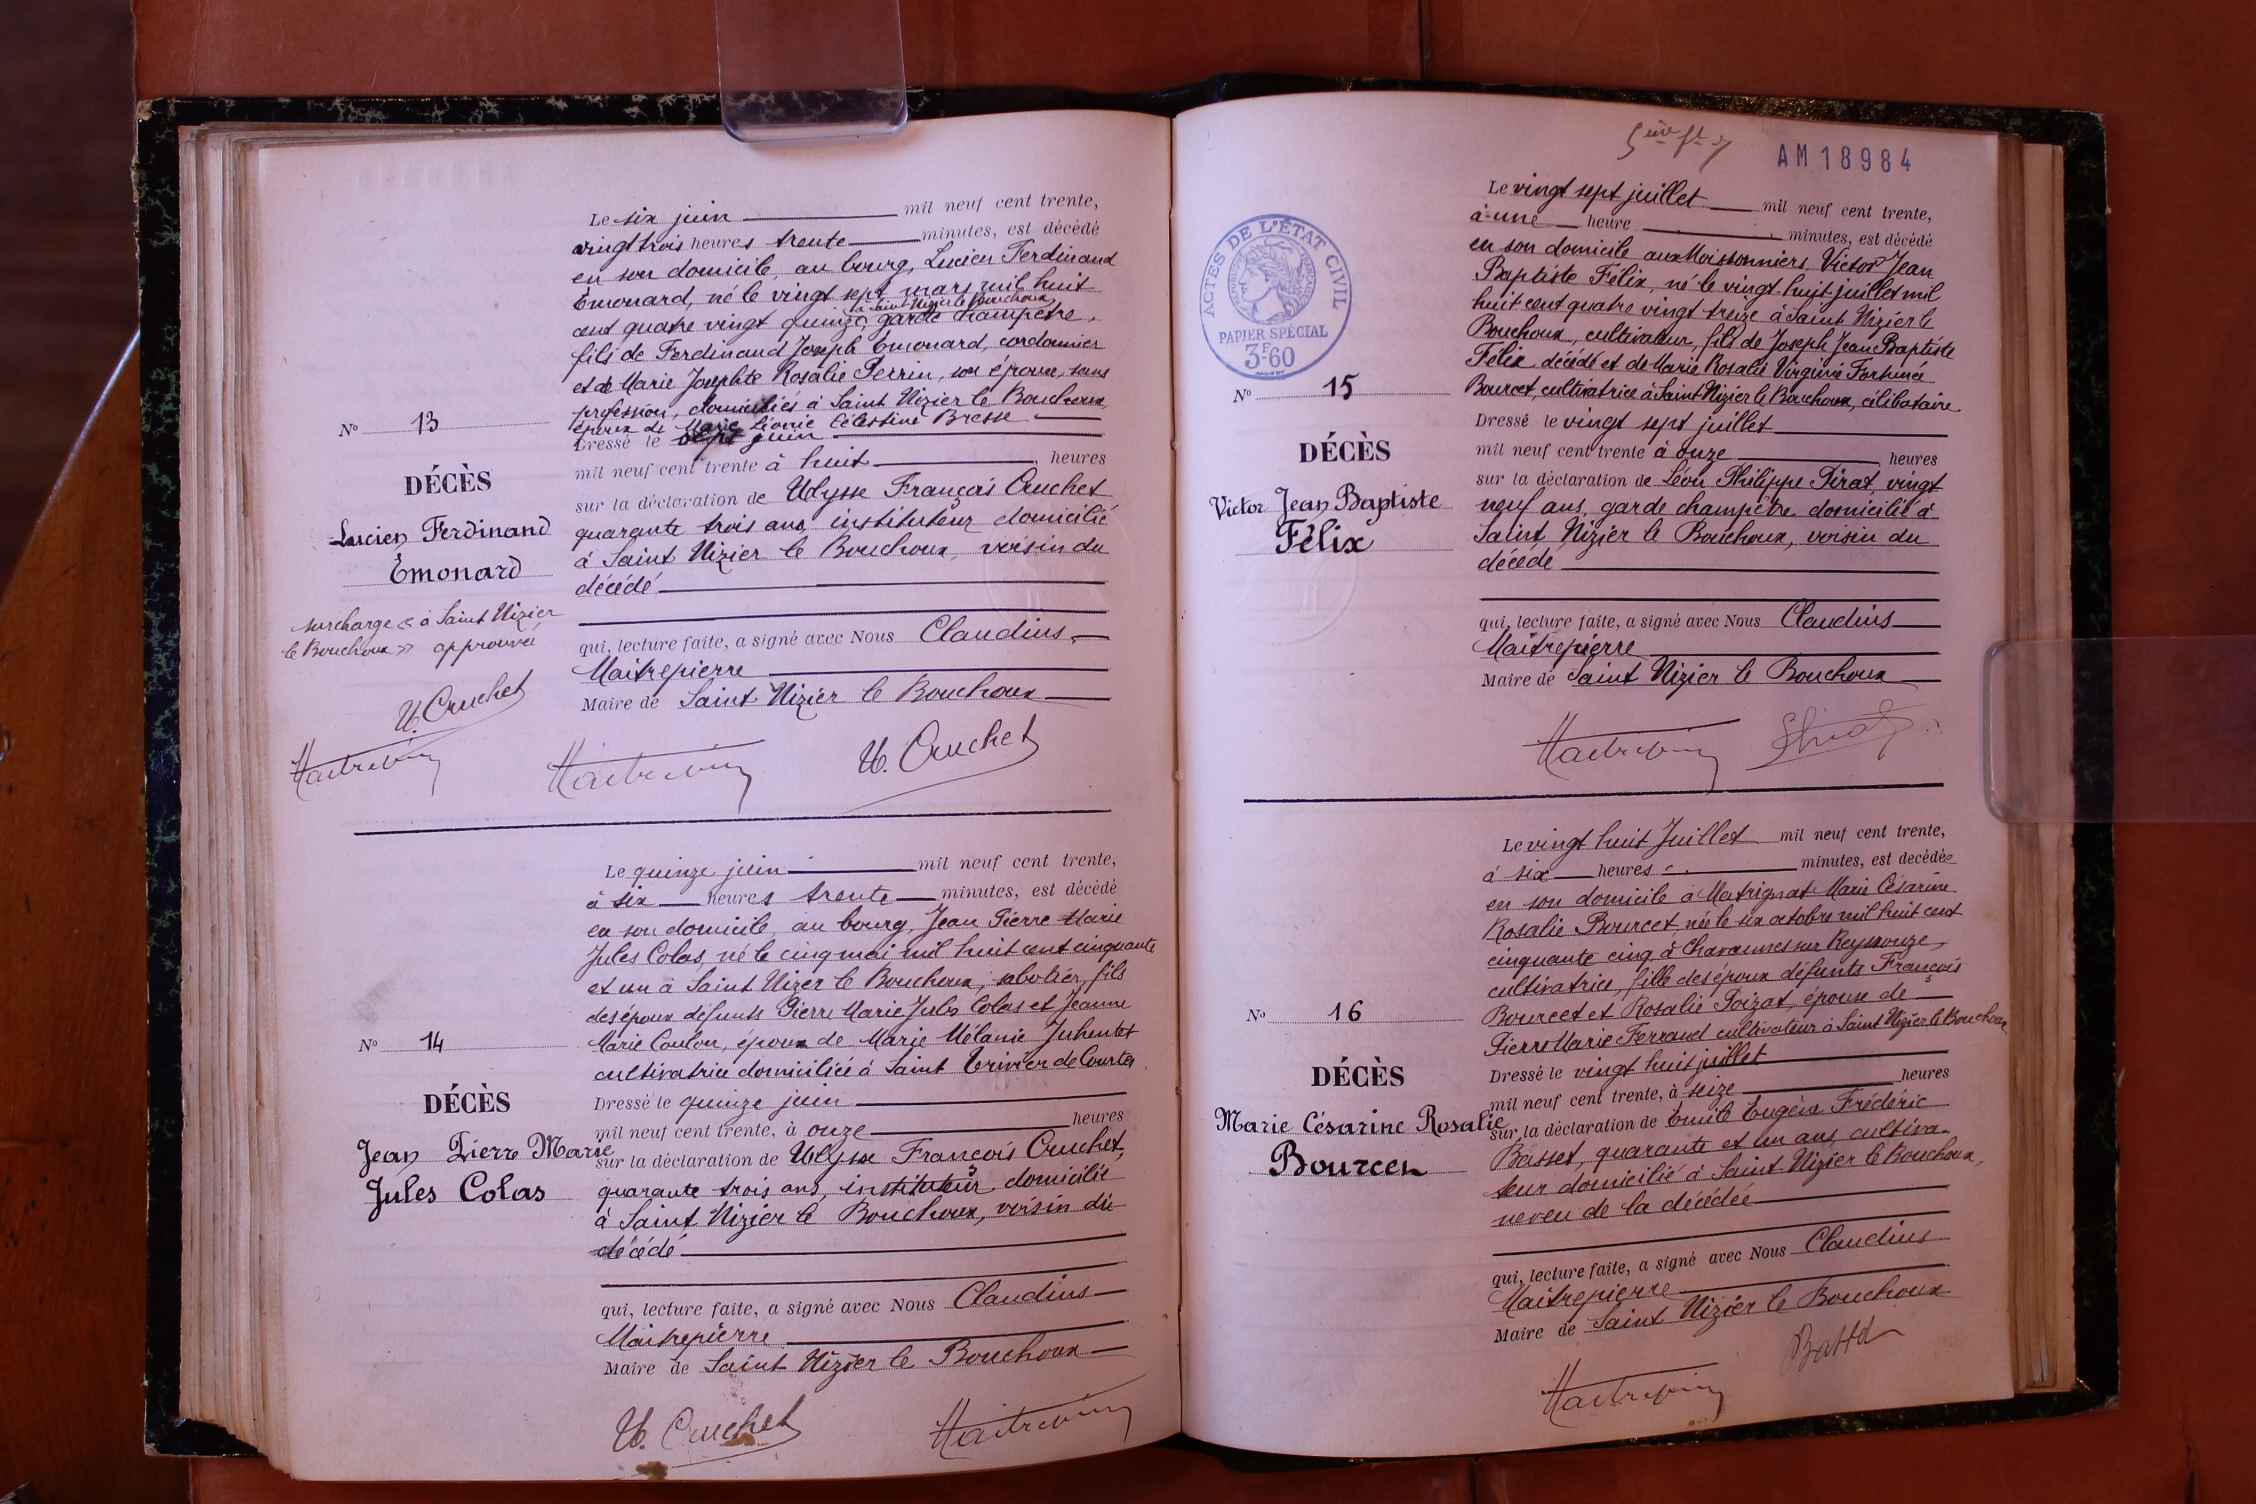 Le six juin mil neuf cent trente,
vingt trois heures trente minutes, est décédé
en son domicile, au bourg, Lucien Ferdinand
Emonard, né le vingt sept mars mil huit
à Saint Nizier le Bouchoux
cent quatre vingt quinze, garde champêtre,
fils de Ferdinand Joseph Emonard, cordonnier
et de Marie Josephte Rosalie Perrin, son épouse, sans
profession, domiciliés à Saint Nizier le Bouchoux,
époux de Marie Léonie Célestine Bresse
Nº 13
Dressé le sept juin
mil neuf cent trente à huit heures
DÉCÈS
sur la déclaration de Ulysse François Cruchet
Lucien Ferdinand
Émonard
quarante trois ans, instituteur domicilié
à Saint Nizier le Bouchoux, voisin du
décédé
surcharge « à Saint Nizier
le Bouchoux » approuvée
qui, lecture faite, a signé avec Nous Claudius
Maitrepierre
Maire de Saint Nizier le Bouchoux
U. Cruchet
U. Cruchet
Le quinze juin mil neuf cent trente,
à six heures trente minutes, est décédé
en son domicile, au bourg, Jean Pierre Marie
Jules Colas, né le cinq mai mil huit cent cinquante
et un à Saint Nizer le Bouchoux, sabotier, fils
des époux défunts Pierre Marie Jules Colas et Jeanne
Marie Coulon, époux de Marie Mélanie
cultivatrice domiciliée à Saint Trivier de Courtes
Nº 14
DÉCÈS
Jean Pierre Marie
Jules Colas
Dressé le quinze juin
mil neuf cent trente, à onze heures
sur la déclaration de Ulysse François Cruchet,
quarante trois ans, instituteur domicilié
à Saint Nizier le Bouchoux, voisin du
décédé
qui, lecture faite, a signé avec Nous Claudius
Maitrepierre
Maire de Saint Nizier le Bouchoux
U. Cruchet
AM 18984
ACTES DE L'ÉTAT CIVIL
PAPIER SPÉCIAL
3F.60
Le vingt sept juillet mil neuf cent trente,
à une heure minutes, est décédé
en son domicile aux Moissonniers Victor Jean
Baptiste Félix, né le vingt huit juillet mil
huit cent quatre vingt treize à Saint Nizier le
Bouchoux, cultivateur, fils de Joseph Jean Baptiste
Félix décédé et de Marie Rosalie Virginie Fortunée
Bourcet, cultivatrice à Saint Nizier le Bouchoux, célibataire
Nº 15
DÉCÈS
Victor Jean Baptiste
Félix
Dressé le vingt sept juillet
mil neuf cent trente à onze heures
sur la déclaration de Léon Philippe Pirat, vingt
neuf ans, garde champêtre domicilié à
Saint Nizier le Bouchoux, voisin du
décédé
qui, lecture faite, a signé avec Nous Claudius
Maitrepierre
Maire de Saint Nizier le Bouchoux
Le vingt huit Juillet mil neuf cent trente,
à six heures minutes, est decédée
en son domicile à Matrignat Marie Césarine
Rosalie Bourcet, née le six octobre mil huit cent
cinquante cinq à Chavannes sur Reyssouze,
cultivatrice, fille des époux défunts François
Bourcet et Rosalie Poizat, épouse de
Pierre Marie Ferrand cultivateur à Saint Nizier le Bouchoux
Nº 16
DÉCÈS
Marie Césarine Rosalie
Bourcet
Dressé le vingt huit juillet
mil neuf cent trente, à seize heures
sur la déclaration de Emile Eugène Frédéric
Basset, quarante et un ans, cultiva-
teur domicilié à Saint Nizier le Bouchoux,
neveu de la décédée
qui, lecture faite, a signé avec Nous Claudius
Maitrepierre
Maire de Saint Nizier le Bouchoux